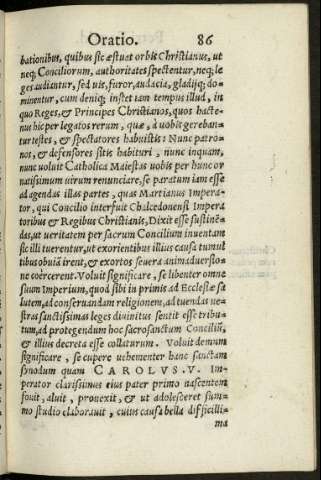 Oratio. 86
bationibus, quibus sic æstuat orbis Christianus, ut
neq; Conciliorum, authoritates spectentur, neq; le
ges audiantur, sed uis, furor, audacia, gladijq; do-
minentur, cum deniq; instet iam tempus illud, in
quo Reges, & Principes Christianos, quos hacte-
nus hic per legatos rerum, quæ, à uobis gereban-
tur testes, & spectatores habuistis: Nunc patro-
nos, & defensores sitis habituri, nunc inquam,
nunc uoluit Catholica Maiestas uobis per hunc or
natissimum uirum renunciare, se paratum iam esse
ad agendas illas partes, quas Martianus Impera-
tor, qui Concilio interfuit Chalcedonensi Impera
toribus & Regibus Christianis, Dixit esse sustinẽ-
das, ut ueritatem per sacrum Concilium inuentam
sic illi tuerentur, ut exorientibus illius causa tumul
tibus obuiã irent, & exortos seuera animaduersio-
ne coërcerent. Voluit significare, se libenter omne
suum Imperium, quod sibi in primis ad Ecclesiæ sa
lutem, ad conseruandam religionem, ad tuendas ue-
stras sanctissimas leges diuinitus sentit esse tribu-
tum, ad protegendum hoc sacrosanctum Concilium,
& illius decreta esse collaturum. Voluit demum
significare, se cupere uehementer hanc sanctam
synodum quam CAROLVS. V. Im-
perator clarissimus eius pater primo nascentem
fouit, aluit, prouexit, & ut adolesceret sum-
mo studio elaborauit, cuius causa bella difficilli-
ma